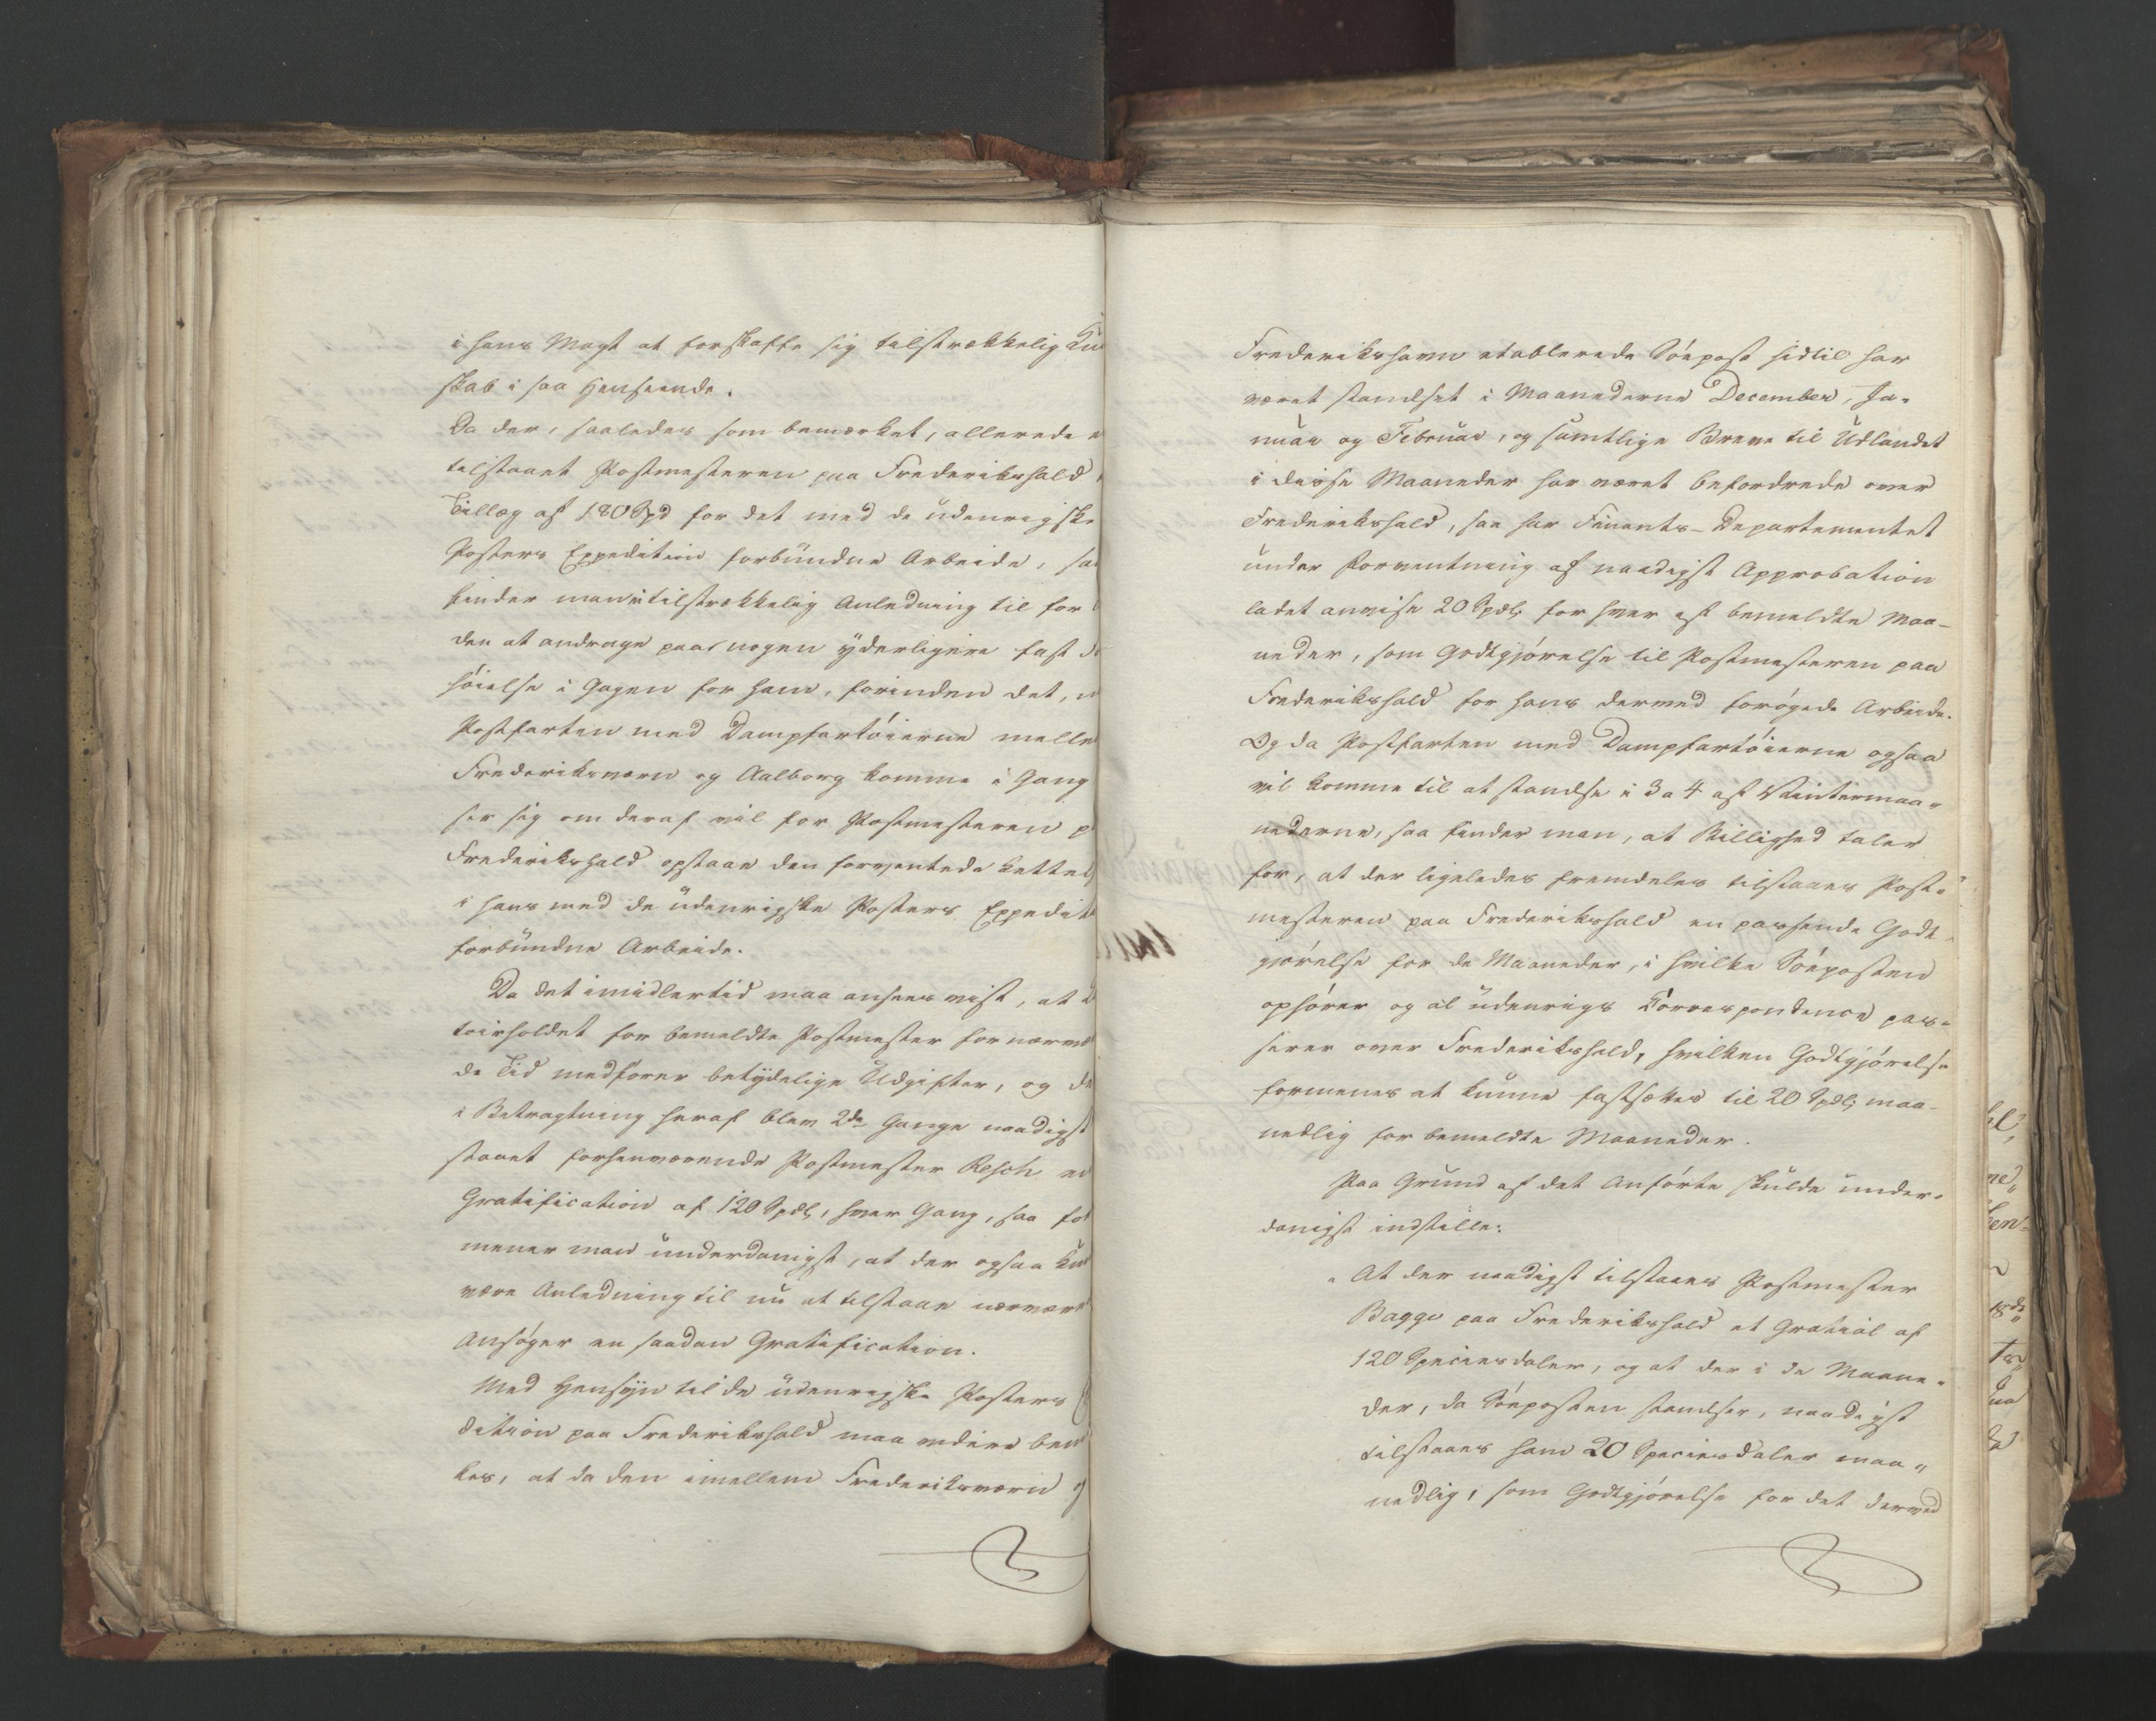 i hans Magt at forskaffe sig tilstrækkelig Kun
skab i saa Henseende.
Da der, saaledes som bemærket, allerede e
tilstaaet Postmesteren paa Frederikshald
Tillæg af 180 Spd for det med de udenrigske
Posters Expedition forbundne Arbeide, saa
finder man ei tilstrækkelig Anledning til for
den at andrage paa nogen yderligere fast
høielse i Gagen for ham, forinden det,
Postfarten med Dampfartøierne melle
Frederiksværn og Aalborg komme i Gang
ser sig om deraf vil for Postmesteren p
Frederikshald opstaae den forventede Lettel
i hans med de udenrigske Posters Expedit
forbundne Arbeide.
Da det imidlertid maa ansees vist, at
toirholdet for bemeldte Postmester for nærvæ
de Tid medfører betydelige Udgifter, og de
i Betragtning heraf blev 2de Gange naadigst
staaet forhenværende Postmester Resch en
Gratification af 120 Spdl, hver Gang, saa for
mener man underdanigst, at der ogsaa kun
være Anledning til nu at tilstaae nærvære
Ansøger en saadan Gratification.
Med Hensyn til de udenrigske Posters
dition paa Frederikshald maa videre bem
kes, at da den imellem Frederiksværn og
Frederikshavn etablerede Søepost hidtil har
været standset i Maanederne December, Ja-
nuar og Februar, og samtlige Breve til Udlandet
i disse Maaneder har været befordrede over
Frederikshald, saa har Finants-Departementet
under Forventning af naadigst Approbation
ladet anvise 20 Spdl; for hver af bemeldte Maa-
neder, som Godtgjørelse til Postmesteren paa
Frederikshald for hans dermed forøgede Arbeide.
Og da Postfarten med Dampfartøierne ogsaa
vil komme til at standse i 3 a 4 af Vintermaa-
nederne, saa finder man, at Billighed taler
for, at der ligeledes fremdeles tilstaaes Post-
mesteren paa Frederikshald en passende Godt
gjørelse for de Maaneder, i hvilke Søeposten
ophører og al udenrigs Correspondence pas-
serer over Frederikshald, hvilken Godtgjørelse
formenes at kunne fastsættes til 20 Spdl; maa-
nedlig for bemeldte Maaneder.
Paa Grund af det Anførte skulde under-
danigst indstille:
" At der naadigst tilstaaes Postmester
Bagge paa Frederikshald et Gratial af
120 Speciesdaler, og at der i de Maane-
der, da Søeposten standser, naadigst
tilstaaes ham 20 Speciesdaler maa-
nedlig, som Godtgjørelse for det derved